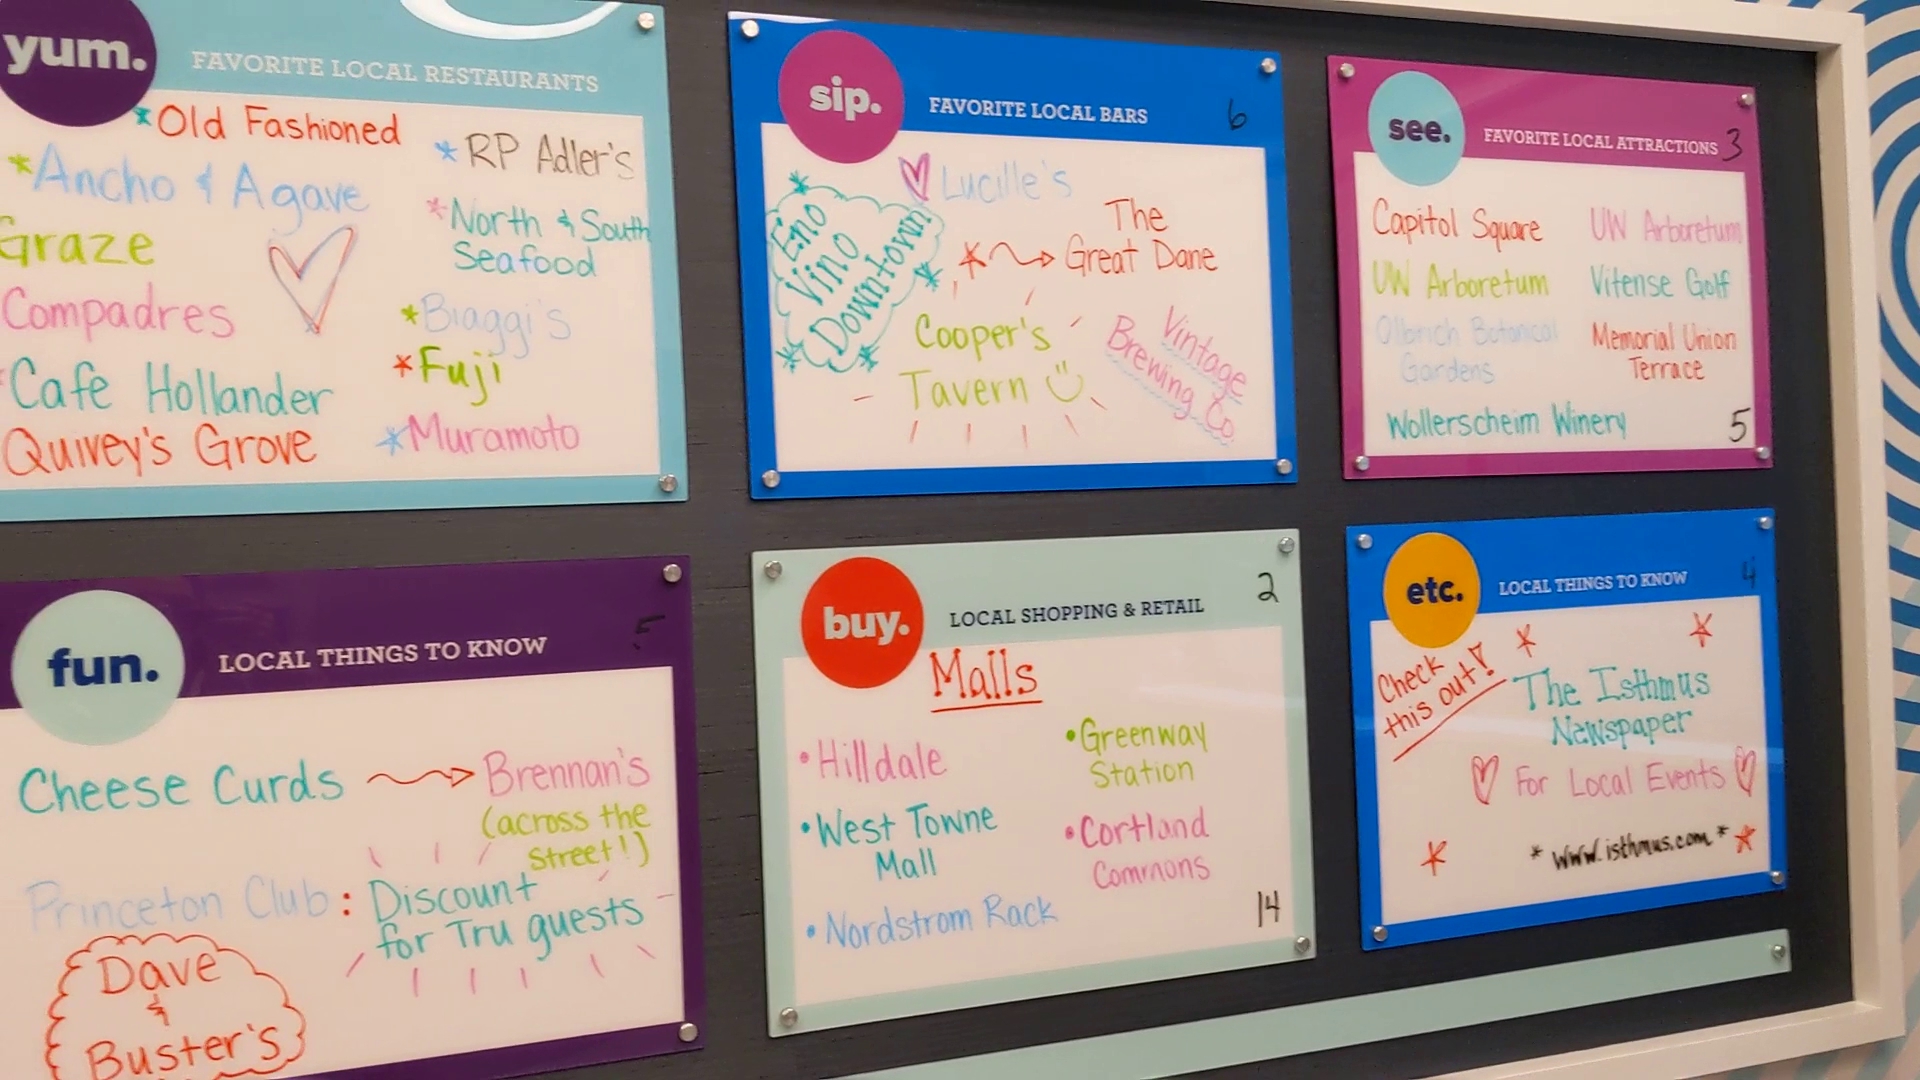 yum.
FAVORITE LOCAL RESTAURANTS
*Old Fashioned
*Ancho & Agave
Graze
Compadres
Cafe Hollander
Quivey's Grove
*RP Adler's
*North & South
Seafood
*Biaggi's
*Fuji
*Muramoto
sip.
FAVORITE LOCAL BARS
6
Eno
Vino
Downtown
Lucille's
The
Great Dane
Cooper's
Tavern
Vintage
Brewing Co.
see.
FAVORITE LOCAL ATTRACTIONS
3
Capitol Square
UW Arboretum
Olbrich Botanical
Gardens
UW Arboretum
Vitense Golf
Memorial Union
Terrace
Wollerscheim Winery
5
fun.
LOCAL THINGS TO KNOW
5
Cheese Curds
Brennan's
(across the
street!)
Princeton Club:
Discount
for Tru guests
Dave
&
Buster's
buy.
LOCAL SHOPPING & RETAIL
2
Malls
•Hilldale
•West Towne
Mall
•Nordstrom Rack
•Greenway
Station
•Cortland
Commons
14
etc.
LOCAL THINGS TO KNOW
4
Check
this out!
The Isthmus
Newspaper
For Local Events
*www.isthmus.com*